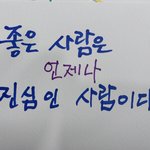 좋은 사람은
언제나
진심인 사람이다